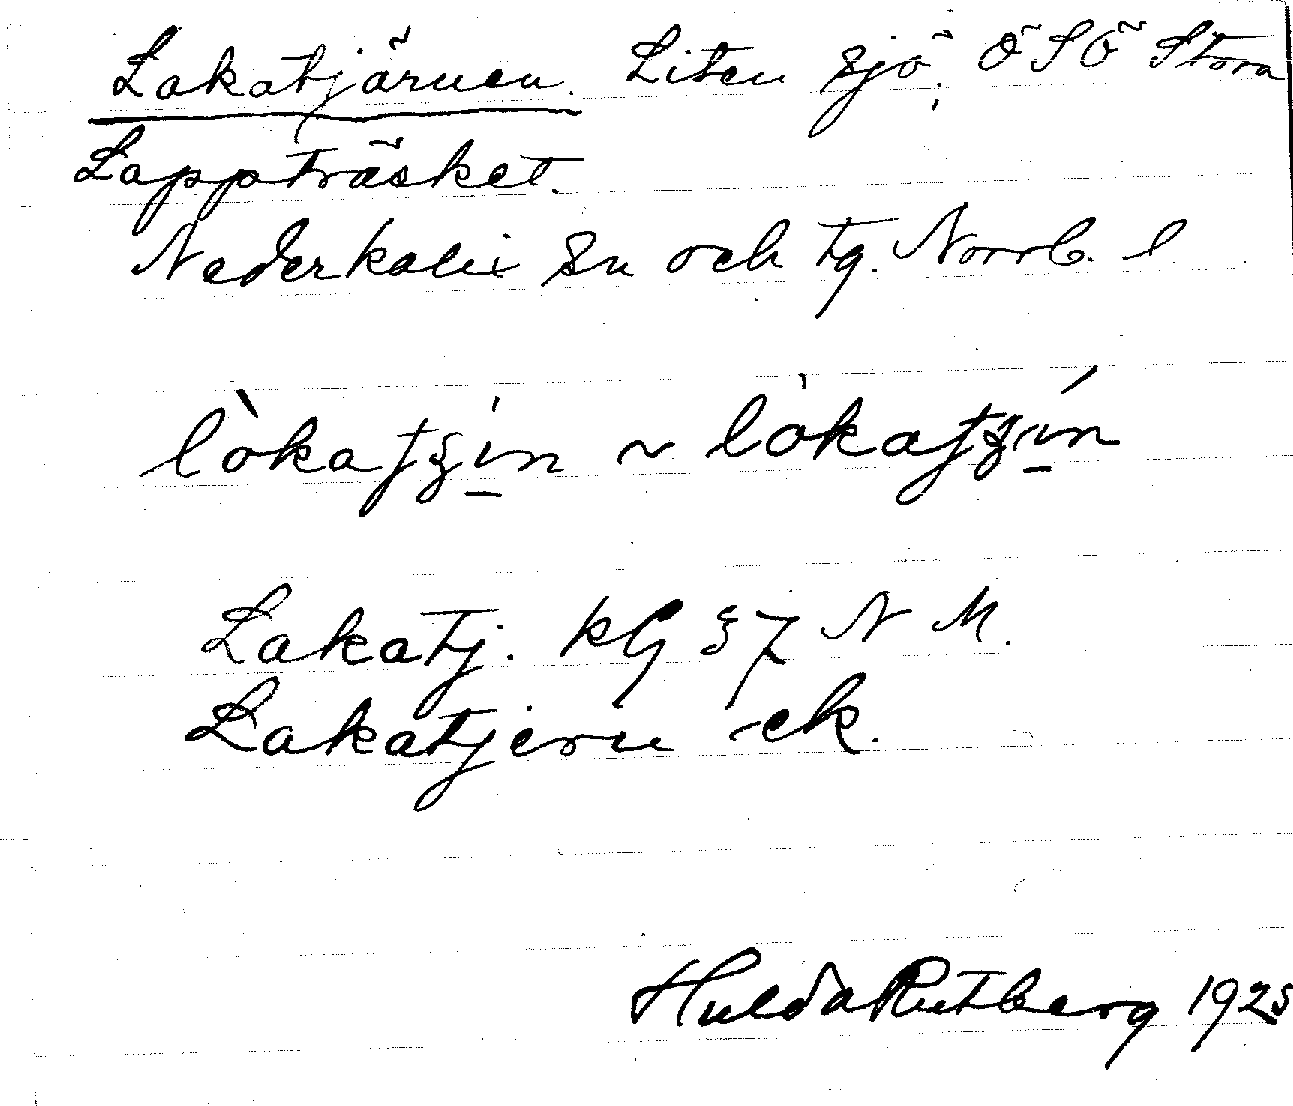 Lakatjärnen. Liten sjö, ÖSÖ Stora
Lappträsket.
Nederkalix sn och tg. Norrb. l
Lakatj. kG 57 N M.
Lakatjern -ek.
Hulda Rutberg 1925